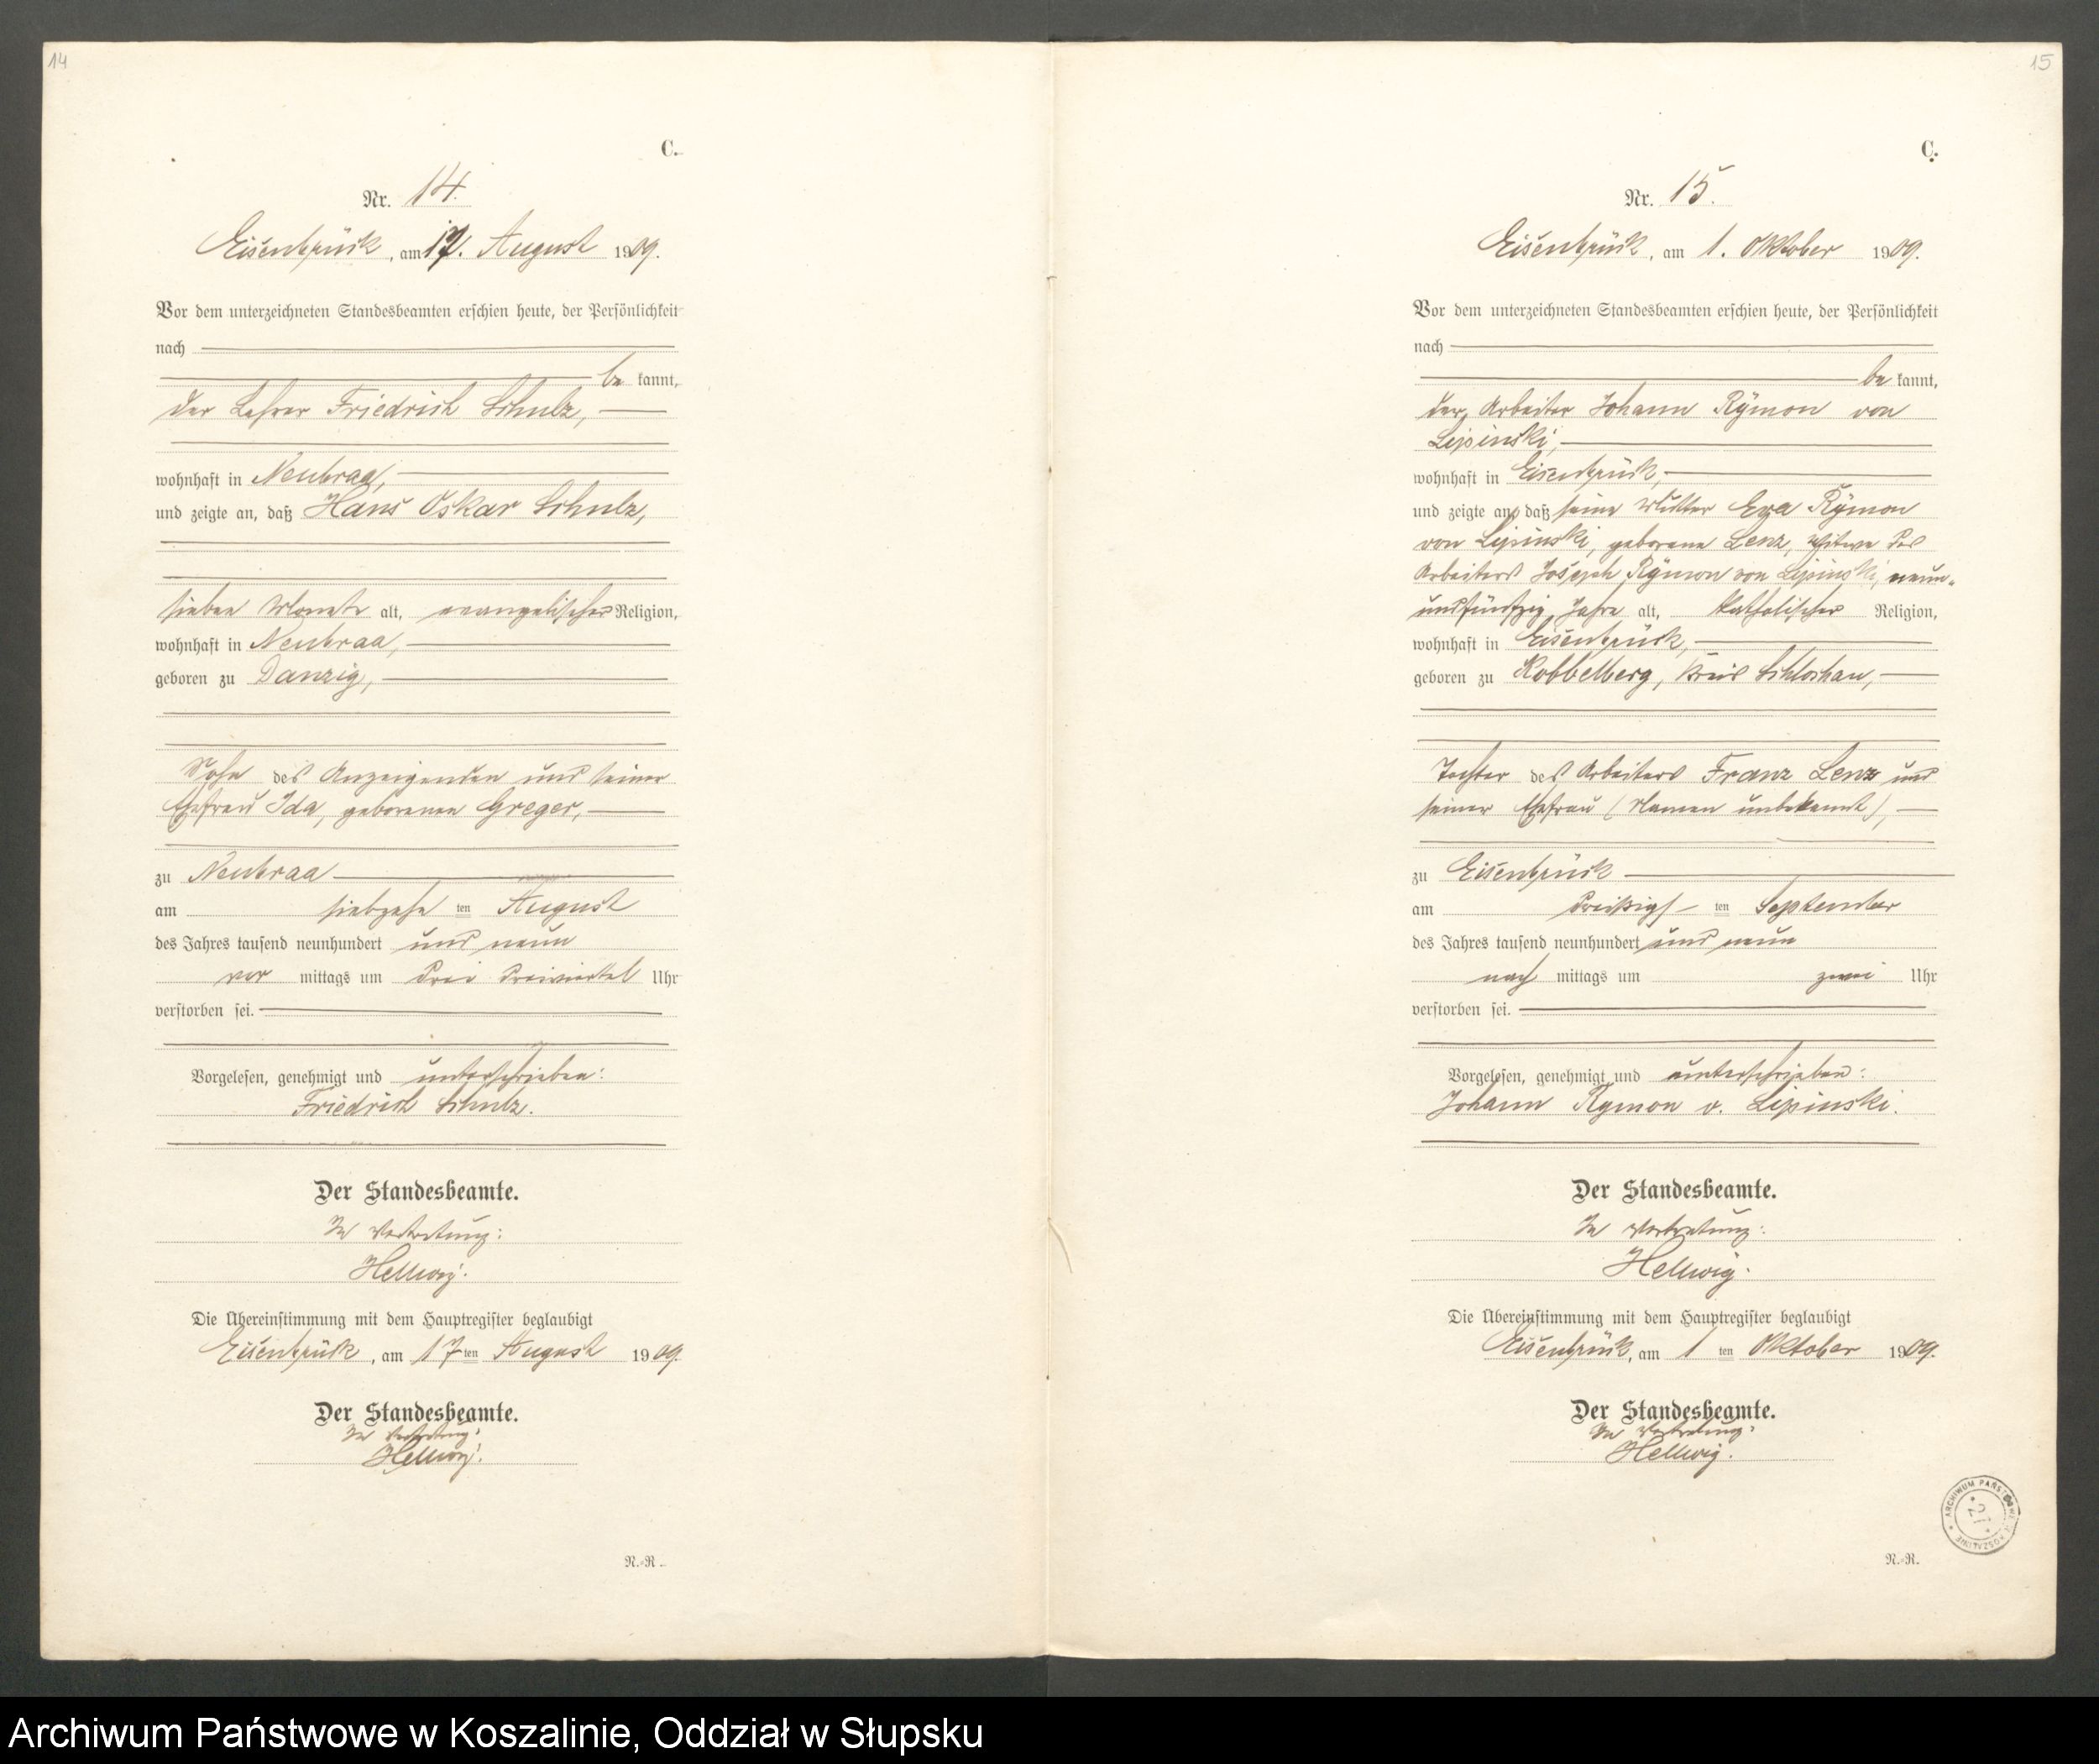 14
C.
Nr. 14.
Eisenbrück, am 17. August 1909.
Vor dem unterzeichneten Standesbeamten erschien heute, der Persönlichkeit
nach
be kannt,
der Lehrer Friedrich Schulz,
wohnhaft in Neubraa,
und zeigte an, daß Hans Oskar Schulz,
sieben Monate alt, evangelischer Religion,
wohnhaft in Neubraa,
geboren zu Danzig,
Sohn des Anzeigenden und seiner
Ehefrau Ida, geborenen Greger,
zu Neubraa
am siebzehnten August
des Jahres tausend neunhundert und neun
vor mittags um drei dreiviertel Uhr
verstorben sei.
Vorgelesen, genehmigt und unterschrieben:
Friedrich Schulz.
Der Standesbeamte.
In Vertretung:
Hellwig.
Die Übereinstimmung mit dem Hauptregister beglaubigt
Eisenbrück, am 17ten August 1909.
Der Standesbeamte.
In Vertretung:
Hellwig.
N.-R.
15
C.
Nr. 15.
Eisenbrück, am 1. Oktober 1909.
Vor dem unterzeichneten Standesbeamten erschien heute, der Persönlichkeit
nach
be kannt,
der Arbeiter Johann Rÿmon von
Lipinski,
wohnhaft in Eisenbrück,
und zeigte an, daß seine Mutter Eva Rÿmon
von Lipinski, geborene Lenz, Witwe des
Arbeiters Joseph Rÿmon von Lipinski, neun-
undfünfzig Jahre alt, katholischer Religion,
wohnhaft in Eisenbrück,
geboren zu Kobbelberg, Kreis Schlochau,
Tochter des Arbeiters Franz Lenz und
seiner Ehefrau (Namen unbekannt),
zu Eisenbrück
am dreißigsten September
des Jahres tausend neunhundert und neun
nach mittags um zwei Uhr
verstorben sei.
Vorgelesen, genehmigt und unterschrieben:
Johann Rymon v. Lipinski.
Der Standesbeamte.
In Vertretung:
Hellwig.
Die Übereinstimmung mit dem Hauptregister beglaubigt
Eisenbrück, am 1ten Oktober 1909.
Der Standesbeamte.
In Vertretung:
Hellwig.
ARCHIWUM PAŃSTWOWE W KOSZALINIE
21
N.-R.
Archiwum Państwowe w Koszalinie, Oddział w Słupsku